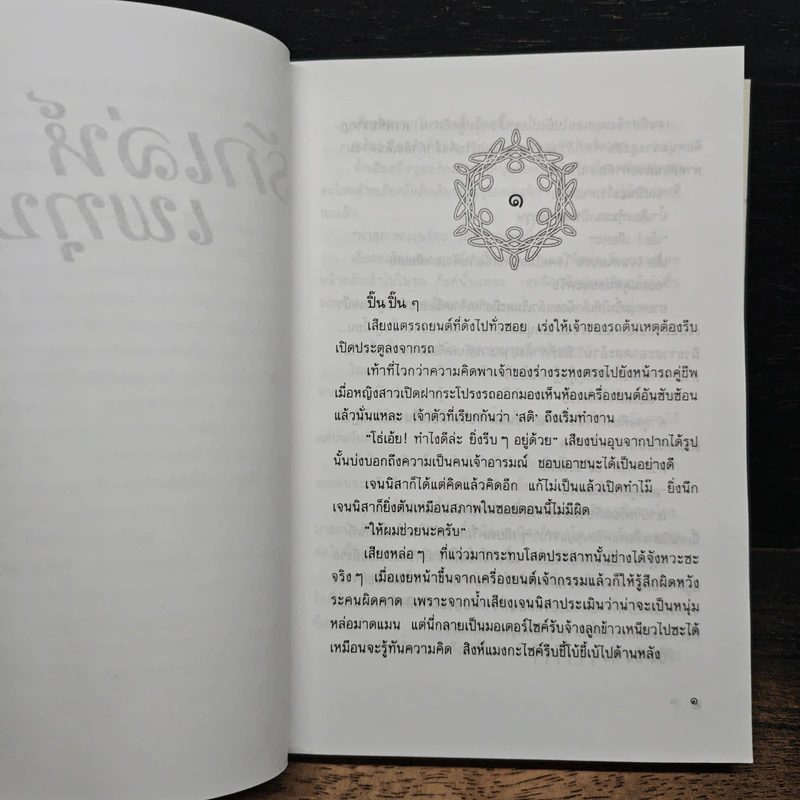 รักเล่ห์
๑
ปิ๊น ปิ๊น ๆ
เสียงแตรรถยนต์ที่ดังไปทั่วซอย เร่งให้เจ้าของรถต้นเหตุต้องรีบ
เปิดประตูลงจากรถ
เท้าที่ไวกว่าความคิดพาเจ้าของร่างระหงตรงไปยังหน้ารถคู่ชีพ
เมื่อหญิงสาวเปิดฝากระโปรงรถออกมองเห็นห้องเครื่องยนต์อันซับซ้อน
แล้วนั่นแหละ เจ้าตัวที่เรียกกันว่า ‘สติ’ ถึงเริ่มทำงาน
“โธ่เอ้ย! ทำไงดีล่ะ ยิ่งรีบ ๆ อยู่ด้วย” เสียงบ่นอุบจากปากได้รูป
นั้นบ่งบอกถึงความเป็นคนเจ้าอารมณ์ ชอบเอาชนะได้เป็นอย่างดี
เจนนิสาก็ได้แต่คิดแล้วคิดอีก แก้ไม่เป็นแล้วเปิดทำไม๊ ยิ่งนึก
เจนนิสาก็ยิ่งตันเหมือนสภาพในซอยตอนนี้ไม่มีผิด
“ให้ผมช่วยนะครับ”
เสียงหล่อ ๆ ที่แว่วมากระทบโสตประสาทนั้นช่างได้จังหวะซะ
จริง ๆ เมื่อเงยหน้าขึ้นจากเครื่องยนต์เจ้ากรรมแล้วก็ให้รู้สึกผิดหวัง
ระคนผิดคาด เพราะจากน้ำเสียงเจนนิสาประเมินว่าน่าจะเป็นหนุ่ม
หล่อมาดแมน แต่นี่กลายเป็นมอเตอร์ไซค์รับจ้างลูกข้าวเหนียวไปซะได้
เหมือนจะรู้ทันความคิด สิงห์แมงกะไซค์รีบชี้โบ้ชี้เบ้ไปด้านหลัง
๑